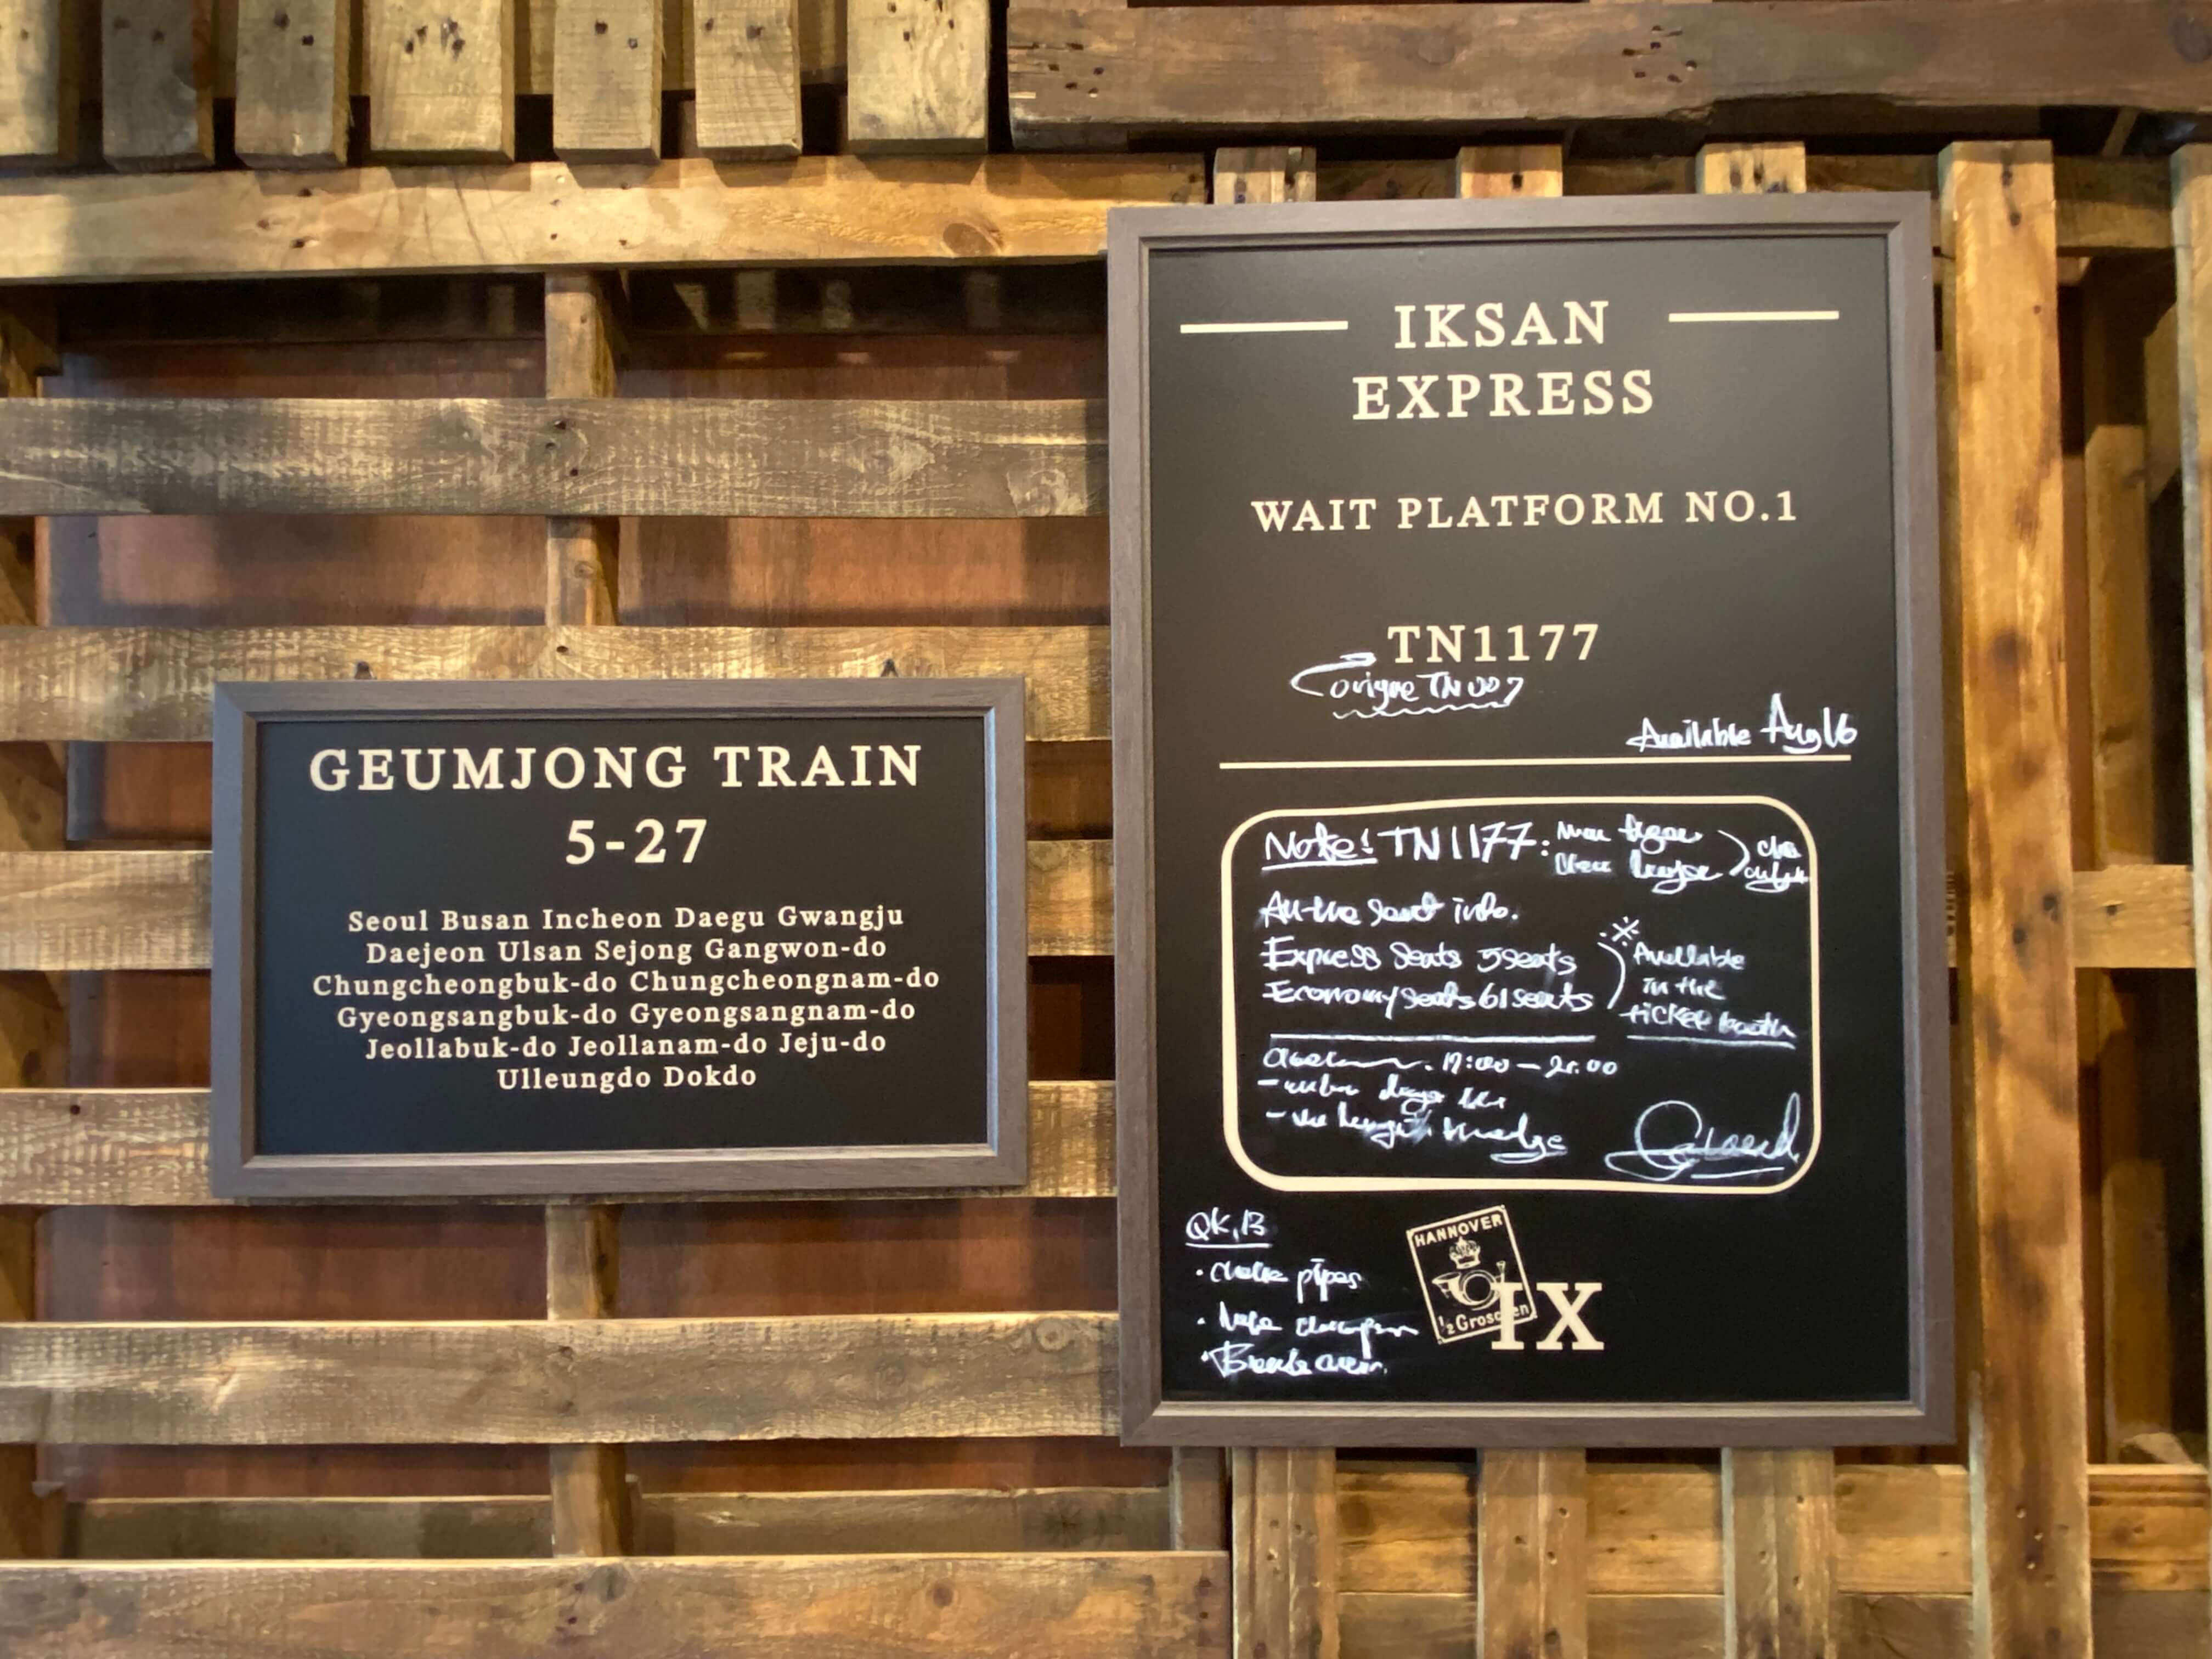 GEUMJONG TRAIN
5-27
Seoul Busan Incheon Daegu Gwangju
Daejeon Ulsan Sejong Gangwon-do
Chungcheongbuk-do Chungcheongnam-do
Gyeongsangbuk-do Gyeongsangnam-do
Jeollabuk-do Jeollanam-do Jeju-do
Ulleungdo Dokdo
IKSAN
EXPRESS
WAIT PLATFORM NO.1
TN1177
TN007
Available Aug16
Note! TN1177:
seat info.
Express Seats 5seats
Economy seats 61seats
※
Available
in the
ticket booth
QK,13
pipes
HANNOVER
1/2 Groschen
IX